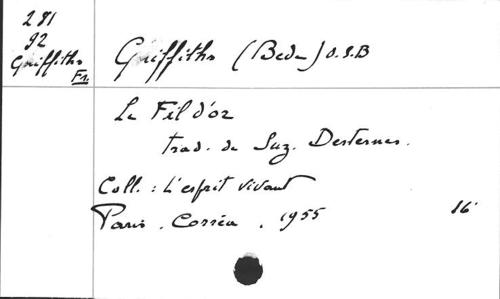 281
92
Griffiths
Fr.
Griffiths (Bede) O.S.B
Le Fil d'or
trad. de Suz. Desternes.
Coll. : L'esprit vivant
Paris. Corrêa. 1955 16°